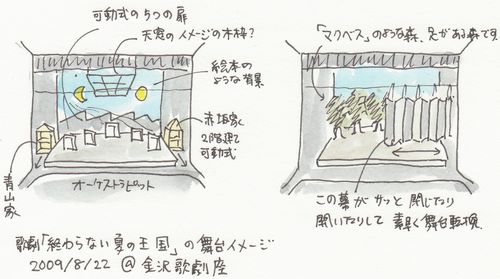 可動式の5つの扉
天窓のイメージの木枠?
絵本の
ような背景
赤坂家
2階建て
可動式
青山家
オーケストラピット
「マクベス」のような森、足がある森です
この幕がサッと閉じたり
開いたりして 素早く舞台転換
歌劇「終わらない夏の王国」の舞台イメージ
2009/8/22 @ 金沢歌劇座